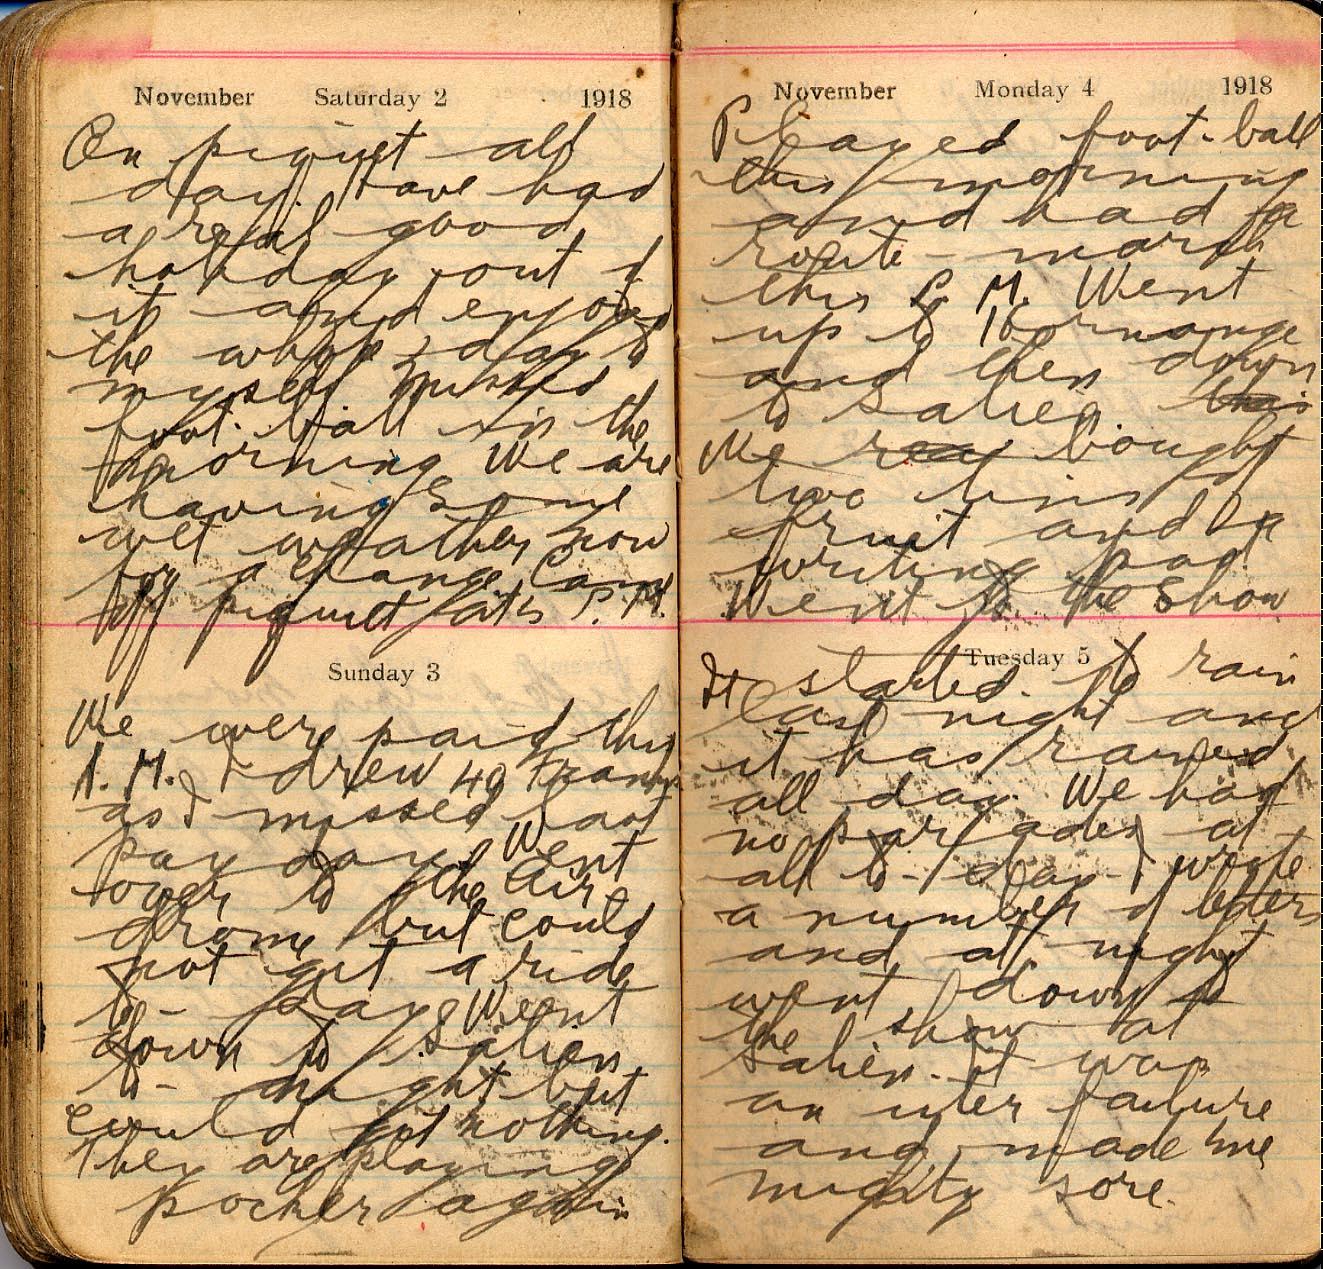 November Saturday 2 1918
On piquet all
day. Have had
a real good
holiday out of
it and enjoyed
the whole day to
myself missed
foot-ball in the
morning We are
having some
wet weather now
for a change Came
off piquet at 5 P.M.
Sunday 3
We were paid this
A. M. I drew 40 Francs
as I missed last
pay day. Went
over to the air
drome but could
not get a ride
to-day Went
down to Salien
to-night but
could get nothing.
They are playing
pocker again
November Monday 4 1918
Played foot-ball
this morning
and had a
route-march
this P. M. Went
up to
and then down
to Salien
We bought
two tins of
fruit and a
writing pad.
Went to the show
Tuesday 5
It started to rain
last night and
it has rained
all day. We had
no parades at
all to-day I wrote
a number of letters
and at night
went down to
the show at
Salien. it was
an uter failure
and made me
mighty sore.